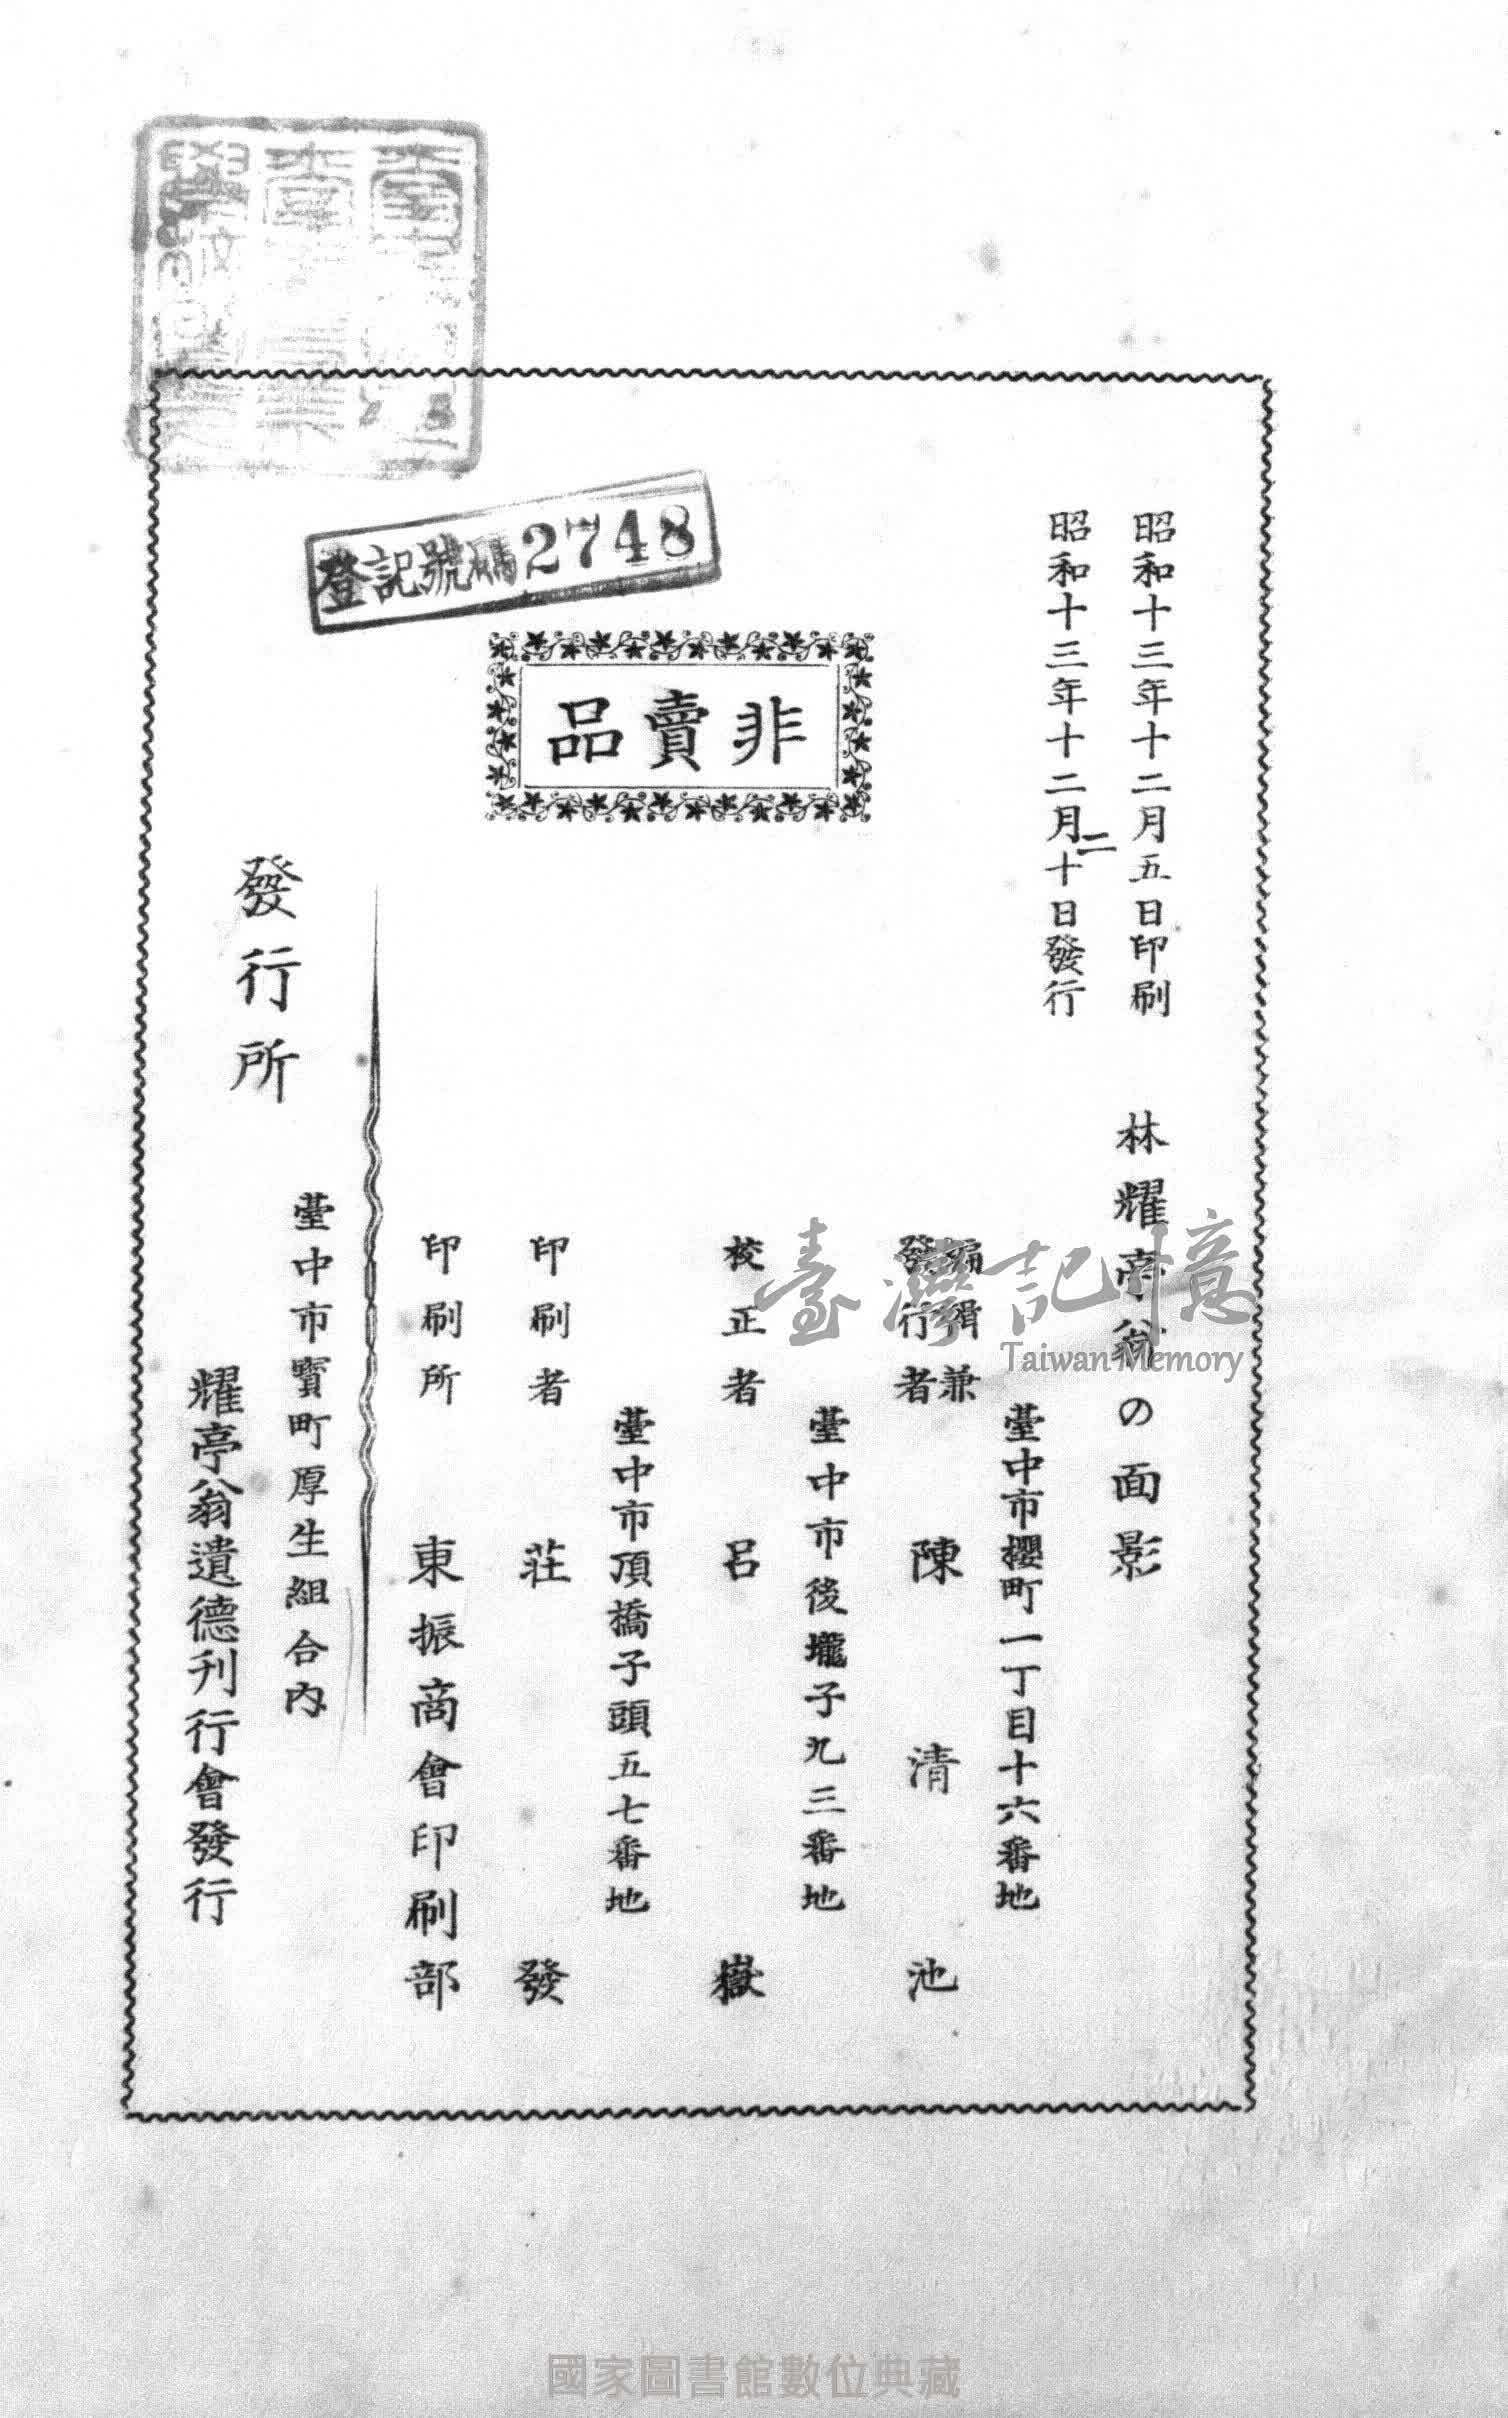 昭和十三年十二月五日印刷
昭和十三年十二月十日發行
二
林耀亭翁の面影
非賣品
登記號碼2748
臺中市櫻町一丁目十六番地
編輯兼
發行者 陳清池
臺中市後壠子九三番地
校正者 呂嶽
臺中市頂橋子頭五七番地
印刷者 莊發
印刷所 東振商會印刷部
發行所
臺中市寶町厚生組合內
耀亭翁遺德刊行會發行
臺灣記憶
Taiwan Memory
國家圖書館數位典藏